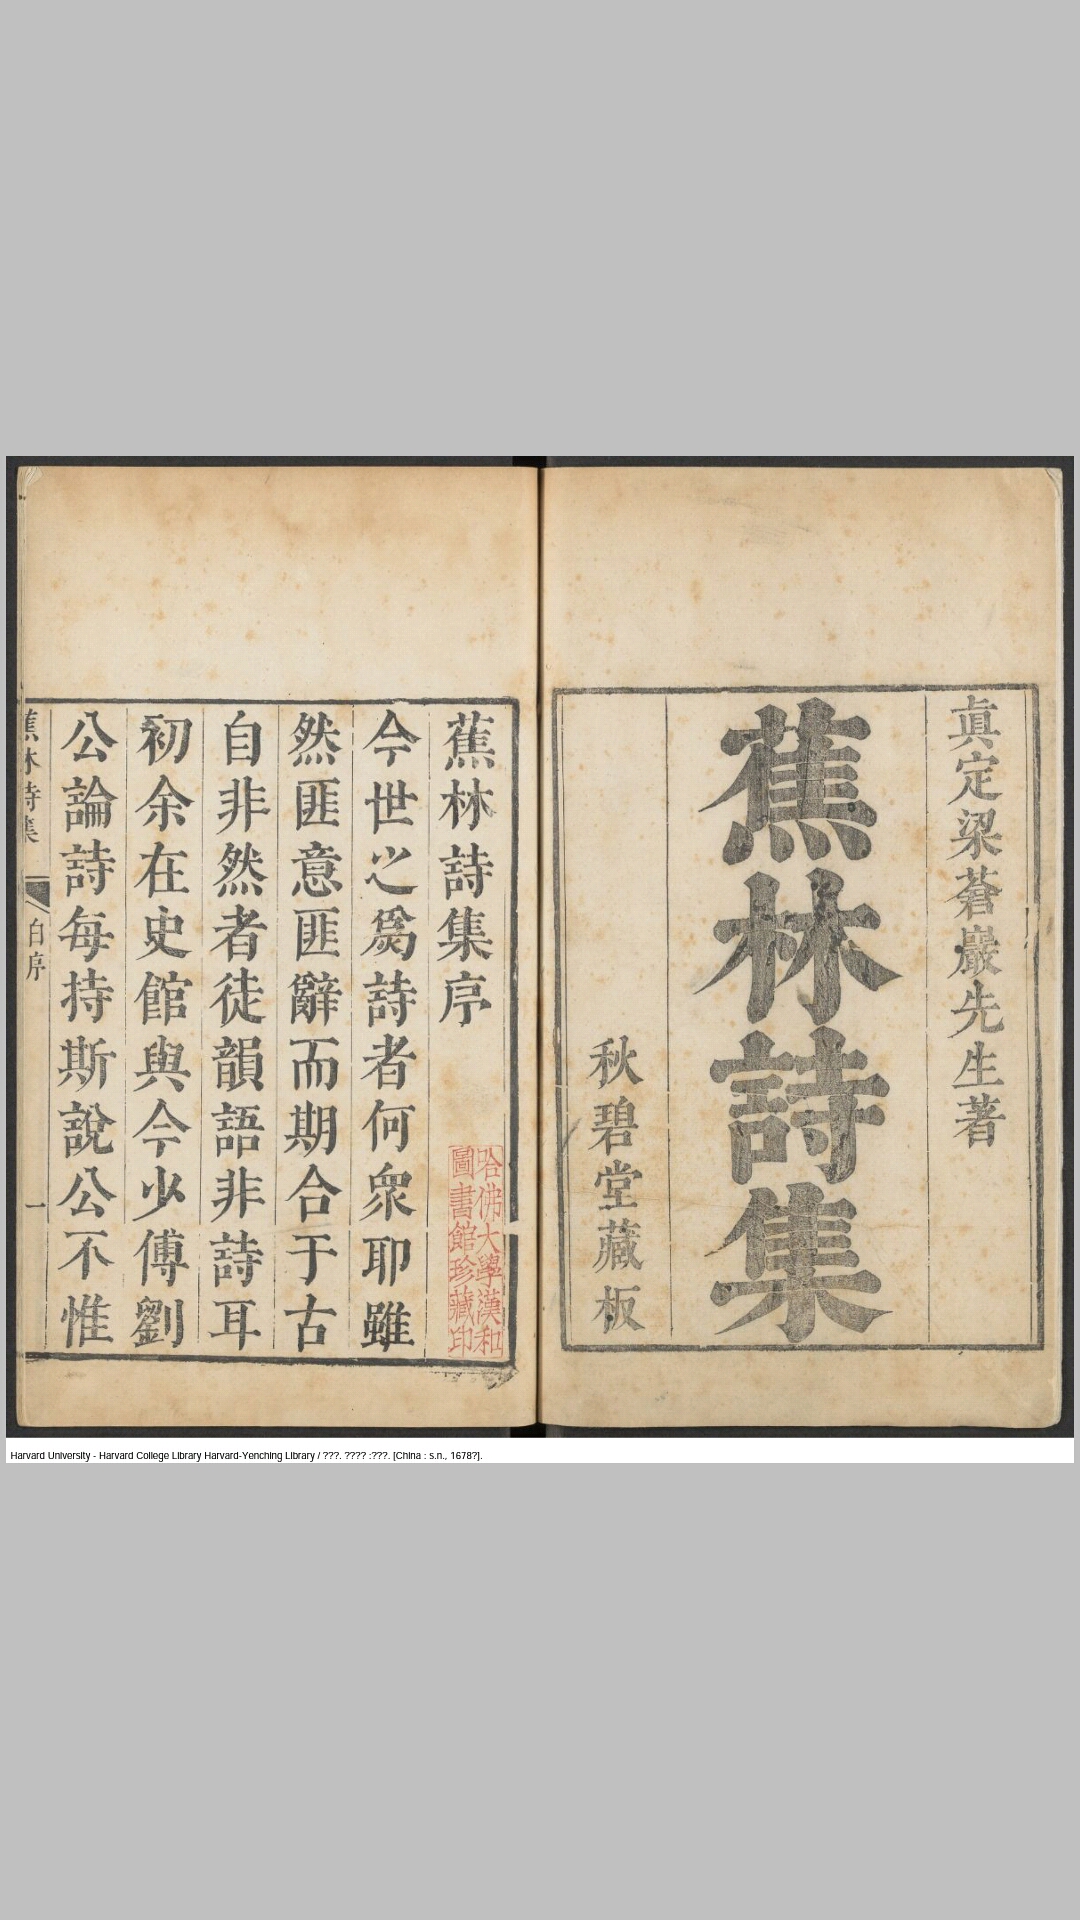 真定梁蒼巖先生著
蕉林詩集
秋碧堂藏板
蕉林詩集序
今世之爲詩者何衆耶雖
然匪意匪辭而期合于古
自非然者徒韻語非詩耳
初余在史館與今少傅劉
公論詩每持斯說公不惟
蕉林詩集 自序 一
哈佛大學漢和
圖書館珍藏印
Harvard University - Harvard College Library Harvard-Yenching Library / ???. ???? :???. [China : s.n., 1678?].